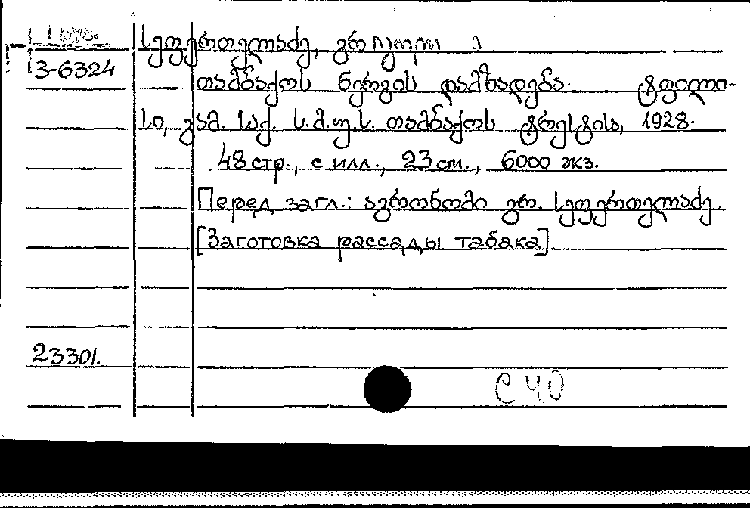 სეფერთელაძე, გრ
3-6324
თამბაქოს ნერგის დამზადება. ტფილი-
სი, გამ. საქ. ს.მ.უ.ს. თამბაქოს ტრესტის, 1928.
48 стр., с илл., 23 см., 6000 экз.
Перед загл.: აგრონომი გრ. სეფერთელაძე.
[Заготовка рассады табака]
23301.
С 40